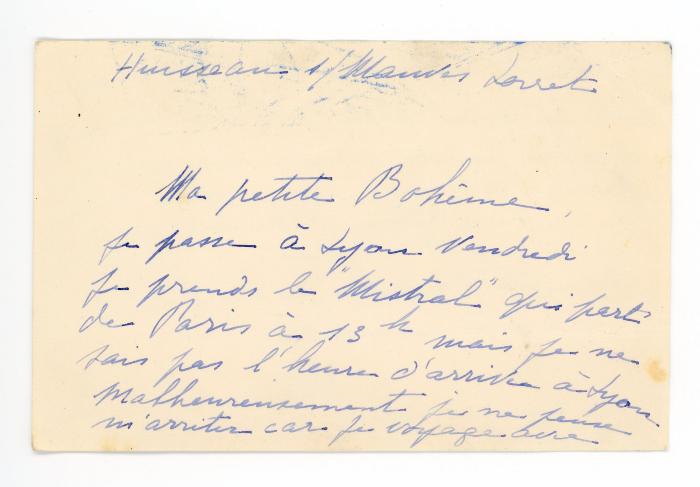 Huisseau s/Mauves Loiret
Ma petite Bohême,
Je passe à Lyon Vendredi
Je prends le "Mistral" qui part
de Paris à 13 h mais je ne
sais pas l'heure d'arrivée à Lyon
Malheureusement je ne peux
m'arrêter car je voyage avec